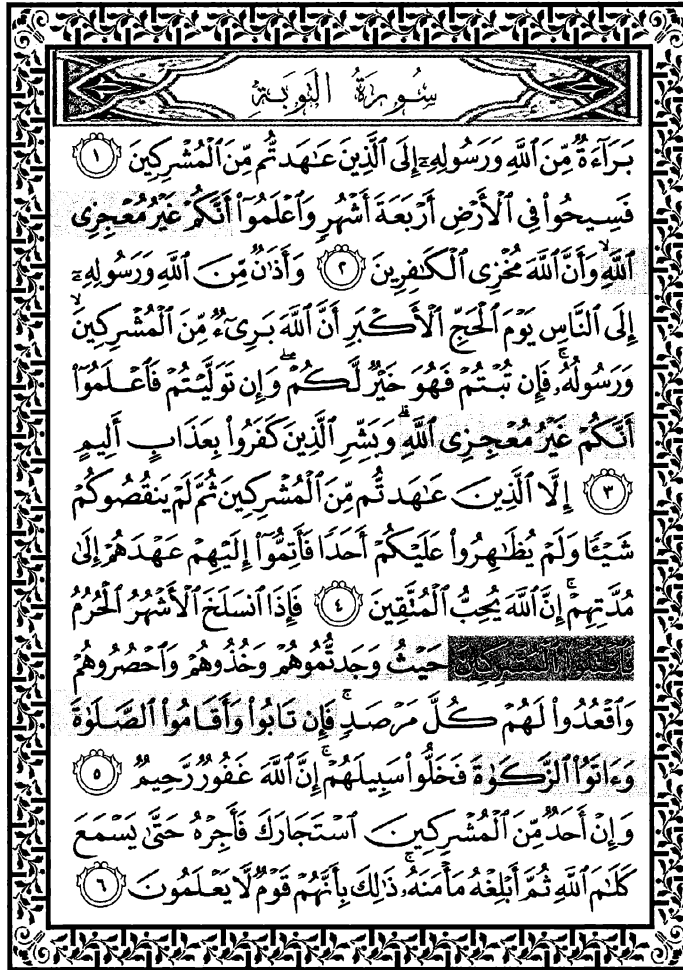 سُورَةُ التَّوْبَةِ
بَرَآءَةٌ مِّنَ اللَّهِ وَرَسُولِهِۦٓ إِلَى الَّذِينَ عَٰهَدتُّم مِّنَ الْمُشْرِكِينَ ١
فَسِيحُوا۟ فِى الْأَرْضِ أَرْبَعَةَ أَشْهُرٍ وَاعْلَمُوٓا۟ أَنَّكُمْ غَيْرُ مُعْجِزِى
اللَّهِ ۙ وَأَنَّ اللَّهَ مُخْزِى الْكَٰفِرِينَ ٢ وَأَذَٰنٌ مِّنَ اللَّهِ وَرَسُولِهِۦٓ
إِلَى النَّاسِ يَوْمَ الْحَجِّ الْأَكْبَرِ أَنَّ اللَّهَ بَرِىٓءٌ مِّنَ الْمُشْرِكِينَ ۙ
وَرَسُولُهُۥ ۚ فَإِن تُبْتُمْ فَهُوَ خَيْرٌ لَّكُمْ ۖ وَإِن تَوَلَّيْتُمْ فَاعْلَمُوٓا۟
أَنَّكُمْ غَيْرُ مُعْجِزِى اللَّهِ ۗ وَبَشِّرِ الَّذِينَ كَفَرُوا۟ بِعَذَابٍ أَلِيمٍ
٣ إِلَّا الَّذِينَ عَٰهَدتُّم مِّنَ الْمُشْرِكِينَ ثُمَّ لَمْ يَنقُصُوكُمْ
شَيْـًٔا وَلَمْ يُظَٰهِرُوا۟ عَلَيْكُمْ أَحَدًا فَأَتِمُّوٓا۟ إِلَيْهِمْ عَهْدَهُمْ إِلَىٰ
مُدَّتِهِمْ ۚ إِنَّ اللَّهَ يُحِبُّ الْمُتَّقِينَ ٤ فَإِذَا انسَلَخَ الْأَشْهُرُ الْحُرُمُ
فَاقْتُلُوا۟ الْمُشْرِكِينَ حَيْثُ وَجَدتُّمُوهُمْ وَخُذُوهُمْ وَاحْصُرُوهُمْ
وَاقْعُدُوا۟ لَهُمْ كُلَّ مَرْصَدٍ ۚ فَإِن تَابُوا۟ وَأَقَامُوا۟ الصَّلَوٰةَ
وَءَاتَوُا۟ الزَّكَوٰةَ فَخَلُّوا۟ سَبِيلَهُمْ ۚ إِنَّ اللَّهَ غَفُورٌ رَّحِيمٌ ٥
وَإِنْ أَحَدٌ مِّنَ الْمُشْرِكِينَ اسْتَجَارَكَ فَأَجِرْهُ حَتَّىٰ يَسْمَعَ
كَلَٰمَ اللَّهِ ثُمَّ أَبْلِغْهُ مَأْمَنَهُۥ ۚ ذَٰلِكَ بِأَنَّهُمْ قَوْمٌ لَّا يَعْلَمُونَ ٦